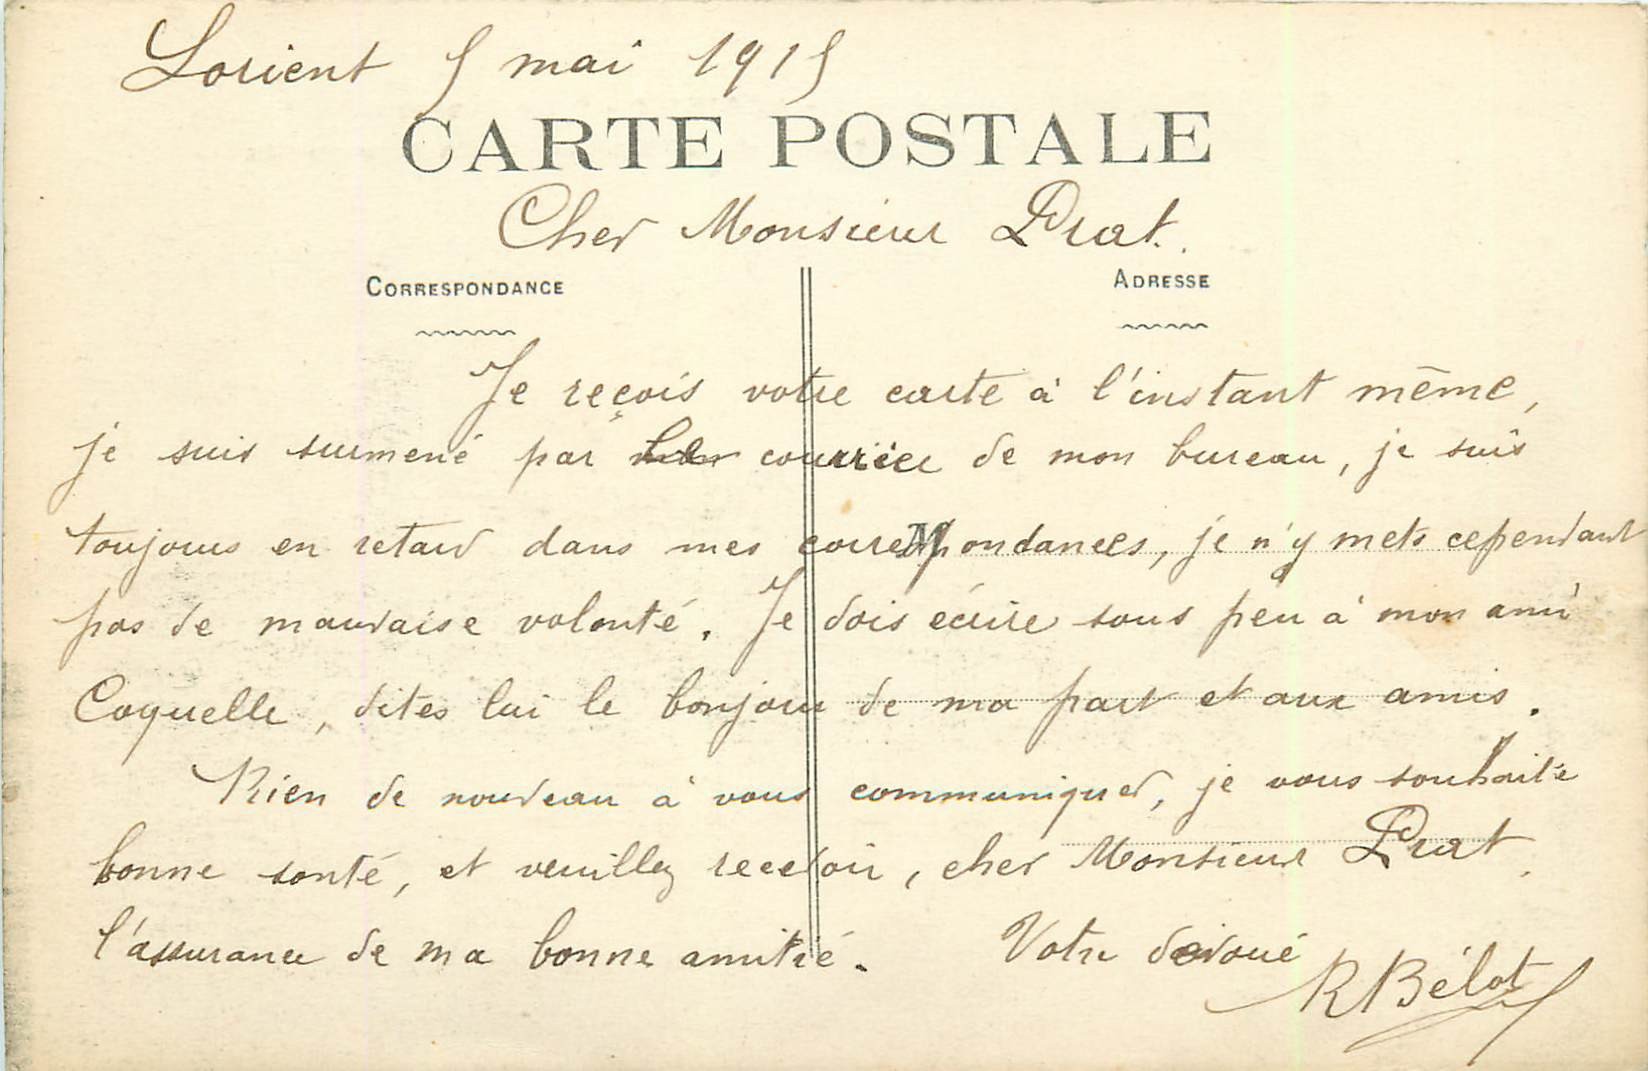 Lorient 5 mai 1915
CARTE POSTALE
Cher Monsieur Prat.
CORRESPONDANCE
ADRESSE
Je reçois votre carte à l'instant même,
je suis surmené par courrier de mon bureau, je suis
toujours en retard dans mes correspondances, je n'y mets cependant
pas de mauvaise volonté. Je dois écrire sous peu à mon ami
Coquelle, dites lui le bonjour de ma part et aux amis.
Rien de nouveau à vous communiquer, je vous souhaite
bonne santé, et veuillez recevoir, cher Monsieur Prat,
l'assurance de ma bonne amitié. Votre dévoué
R Bélot